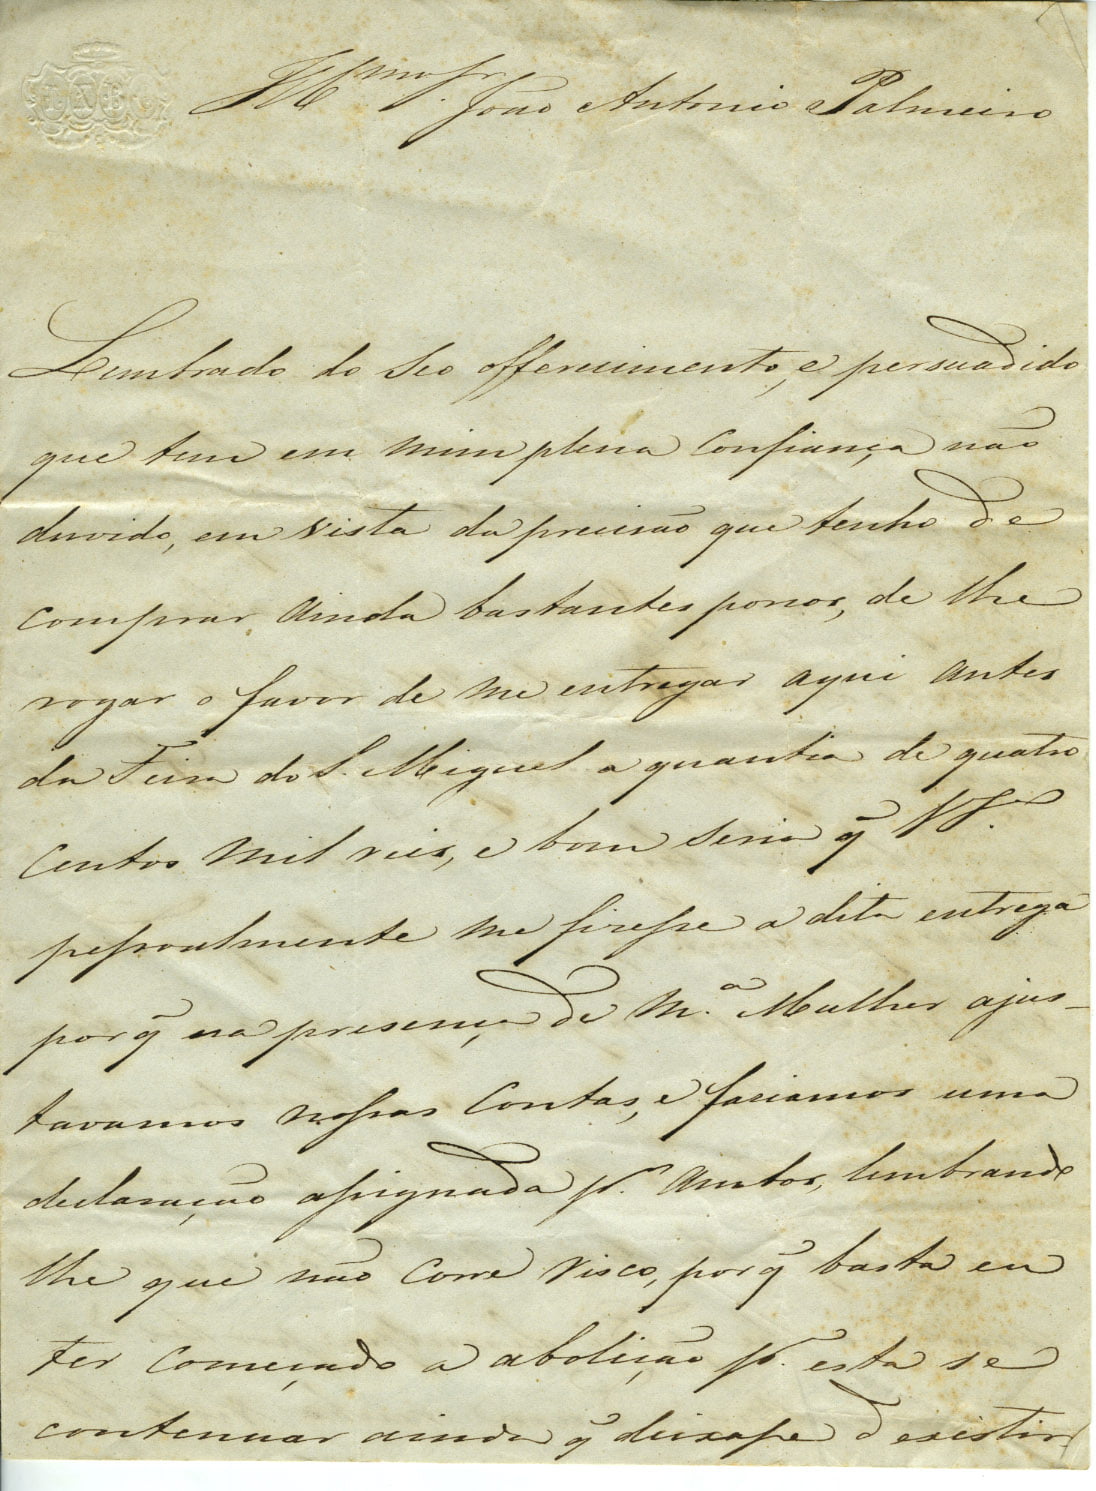 Illmo. Sr. João Antonio Palmeiro
Lembrado do Seo offerecimento, e persuadido
que tem em mim plena Confiança não
duvido, em vista da precisão que tenho de
comprar Ainda bastantes porcos, de lhe
rogar o favor de me entregar aqui Antes
da Feira do S. Miguel a quantia de quatro
Centos Mil reis, e bom seria q̃ VSa.
pessoalmente me fizesse a dita entrega
porq̃ na presença de Ma. Mulher ajus-
tavamos nossas Contas, e faciamos uma
declaração assignada pr. Ambos, lembrando
lhe que não Corre risco, porq̃ basta eu
ter Começado a abolição pa. esta se
contenuar ainda q̃ deixasse d'existir